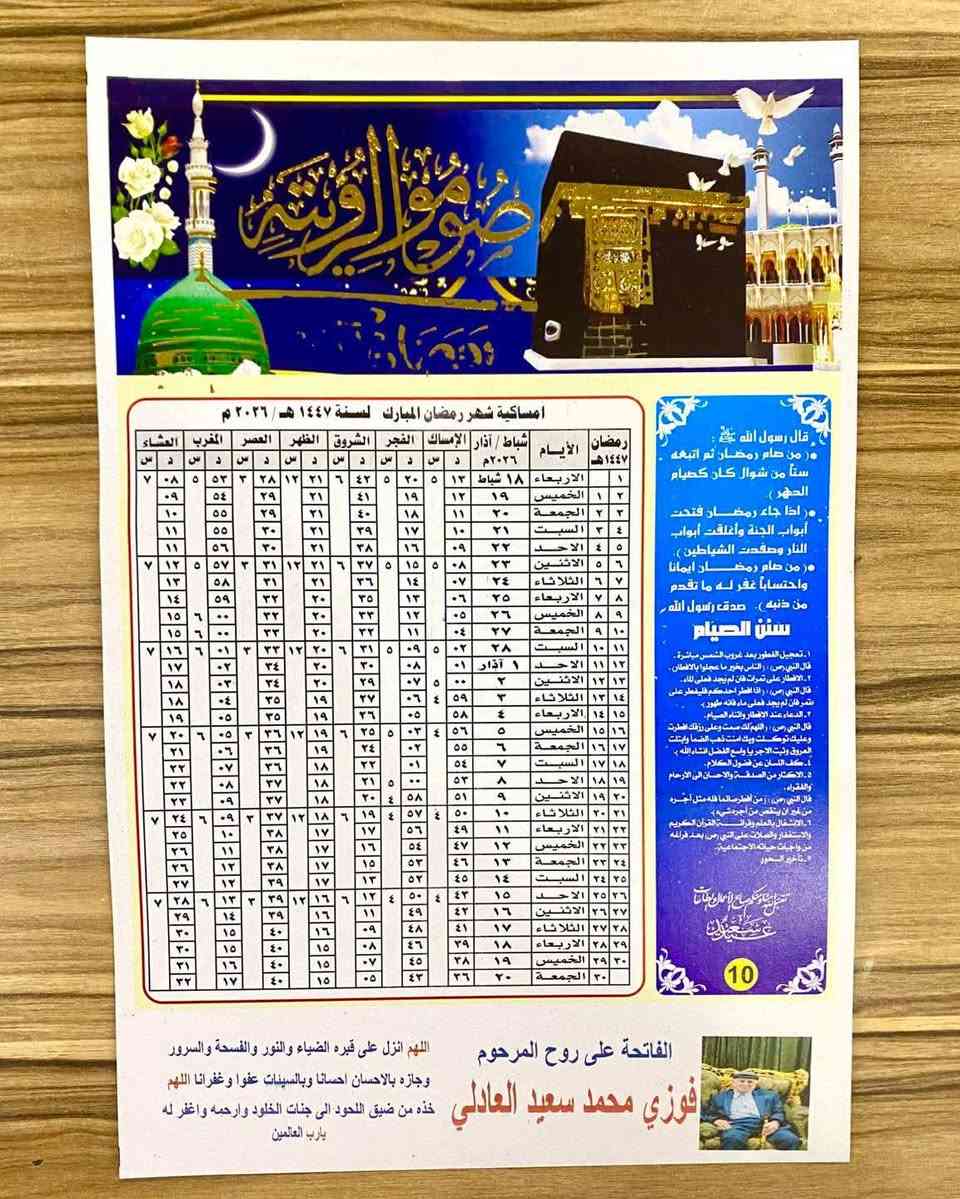 صوموا لرؤيته
امساكية شهر رمضان المبارك لسنة ١٤٤٧ هـ / ٢٠٢٦ م
رمضان ١٤٤٧هـ الأيـام شباط / آذار ٢٠٢٦م الإمساك الفجر الشروق الظهر العصر المغرب العشاء
د س د س د س د س د س د س د س
١ الاربعاء ١٨ شباط ١٣ ٥ ٢٠ ٥ ٤٢ ٦ ٢١ ١٢ ٢٨ ٣ ٥٣ ٥ ٠٨ ٧
٢ ١ الخميس ١٩ ١٢ ١٩ ٤١ ٢١ ٢٩ ٥٤ ٠٩
٣ ٢ الجمعة ٢٠ ١١ ١٨ ٤٠ ٢١ ٢٩ ٥٥ ١٠
٤ ٣ السبت ٢١ ١٠ ١٧ ٣٩ ٢١ ٣٠ ٥٥ ١١
٥ ٤ الاحد ٢٢ ٠٩ ١٦ ٣٨ ٢١ ٣٠ ٥٦ ١١
٦ ٥ الاثنين ٢٣ ٠٨ ٥ ١٥ ٥ ٣٧ ٦ ٢١ ١٢ ٣١ ٣ ٥٧ ٥ ١٢ ٧
٧ ٦ الثلاثاء ٢٤ ٠٧ ١٤ ٣٦ ٢١ ٣١ ٥٨ ١٣
٨ ٧ الاربعاء ٢٥ ٠٦ ١٣ ٣٥ ٢٠ ٣٢ ٥٩ ١٤
٩ ٨ الخميس ٢٦ ٠٥ ١٢ ٣٣ ٢٠ ٣٢ ٠٠ ٦ ١٥
١٠ ٩ الجمعة ٢٧ ٠٤ ١١ ٣٢ ٢٠ ٣٣ ٠٠ ٦ ١٥
١١ ١٠ السبت ٢٨ ٠٢ ٥ ٠٩ ٥ ٣١ ٦ ٢٠ ١٢ ٣٣ ٣ ٠١ ٦ ١٦ ٧
١٢ ١١ الاحد ١ آذار ٠١ ٠٨ ٣٠ ٢٠ ٣٤ ٠٢ ١٧
١٣ ١٢ الاثنين ٢ ٠٠ ٥ ٠٧ ٢٩ ٢٠ ٣٤ ٠٣ ١٨
١٤ ١٣ الثلاثاء ٣ ٥٩ ٤ ٠٦ ٢٧ ١٩ ٣٥ ٠٤ ١٨
١٥ ١٤ الاربعاء ٤ ٥٨ ٠٥ ٢٦ ١٩ ٣٥ ٠٥ ١٩
١٦ ١٥ الخميس ٥ ٥٦ ٤ ٠٣ ٥ ٢٥ ٦ ١٩ ١٢ ٣٦ ٣ ٠٥ ٦ ٢٠ ٧
١٧ ١٦ الجمعة ٦ ٥٥ ٠٢ ٢٤ ١٩ ٣٦ ٠٦ ٢١
١٨ ١٧ السبت ٧ ٥٤ ٠١ ٢٢ ١٨ ٣٦ ٠٧ ٢٢
١٩ ١٨ الاحد ٨ ٥٣ ٠٠ ٥ ٢١ ١٨ ٣٧ ٠٨ ٢٢
٢٠ ١٩ الاثنين ٩ ٥١ ٥٨ ٤ ٢٠ ١٨ ٣٧ ٠٩ ٢٣
٢١ ٢٠ الثلاثاء ١٠ ٥٠ ٤ ٥٧ ٤ ١٩ ٦ ١٨ ١٢ ٣٧ ٣ ٠٩ ٦ ٢٤ ٧
٢٢ ٢١ الاربعاء ١١ ٤٩ ٥٦ ١٧ ١٧ ٣٨ ١٠ ٢٥
٢٣ ٢٢ الخميس ١٢ ٤٧ ٥٤ ١٦ ١٧ ٣٨ ١١ ٢٦
٢٤ ٢٣ الجمعة ١٣ ٤٦ ٥٣ ١٥ ١٧ ٣٨ ١٢ ٢٦
٢٥ ٢٤ السبت ١٤ ٤٥ ٥٢ ١٣ ١٧ ٣٩ ١٢ ٢٧
٢٦ ٢٥ الاحد ١٥ ٤٣ ٤ ٥٠ ٤ ١٢ ٦ ١٦ ١٢ ٣٩ ٣ ١٣ ٦ ٢٨ ٧
٢٧ ٢٦ الاثنين ١٦ ٤٢ ٤٩ ١١ ١٦ ٣٩ ١٤ ٢٩
٢٨ ٢٧ الثلاثاء ١٧ ٤١ ٤٨ ٠٩ ١٦ ٤٠ ١٥ ٣٠
٢٩ ٢٨ الاربعاء ١٨ ٣٩ ٤٦ ٠٨ ١٥ ٤٠ ١٥ ٣٠
٣٠ ٢٩ الخميس ١٩ ٣٨ ٤٥ ٠٧ ١٥ ٤٠ ١٦ ٣١
٣٠ الجمعة ٢٠ ٣٦ ٤٣ ٠٥ ١٥ ٤٠ ١٧ ٣٢
قال رسول الله ﷺ :
( من صام رمضان ثم اتبعه
ستاً من شوال كان كصيام
الدهر ).
( اذا جاء رمضان فتحت
أبواب الجنة وأغلقت أبواب
النار وصفدت الشياطين ).
( من صام رمضان ايمانا
واحتساباً غفر له ما تقدم
من ذنبه ). صدق رسول الله
سنن الصيام
١. تعجيل الفطور بعد غروب الشمس مباشرة .
قال النبي (ص) : ( الناس بخير ما عجلوا بالافطار).
٢. الافطار على تمرات فان لم يجد فعلى الماء.
قال النبي (ص) : ( اذا افطر احدكم فليفطر على
تمر فان لم يجد فعلى ماء فانه طهور).
٢. الدعاء عند الافطار واثناء الصيام.
قال النبي (ص) : (اللهم لك صمت وعلى رزقك افطرت
وعليك توكلت وبك امنت ذهب الضمأ وابتلت
العروق وثبت الاجر يا واسع الفضل انشاء الله ).
٤. كف اللسان عن فضول الكلام.
٥. الاكثار من الصدقة والاحسان الى الارحام
والفقراء.
قال النبي (ص) : ( من أفطر صائما فله مثل أجره
من غير ان ينقص من أجره شيء ).
٦. الانشغال بالعلم وقرائة القرآن الكريم
والاستغفار والصلاة على النبي (ص) بعد فراغه
من واجبات حياته الاجتماعية.
٧. تأخير السحور
10
الفاتحة على روح المرحوم
فوزي محمد سعيد العادلي
اللهم انزل على قبره الضياء والنور والفسحة والسرور
وجازه بالاحسان احسانا وبالسيئات عفوا وغفرانا اللهم
خذه من ضيق اللحود الى جنات الخلود وارحمه واغفر له
يارب العالمين